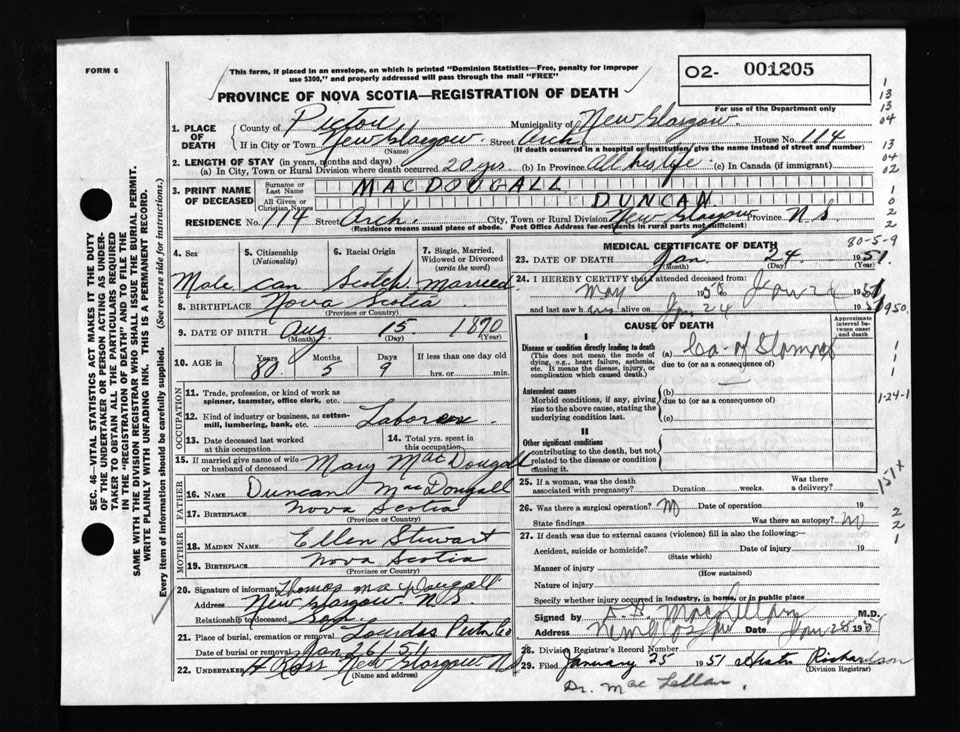 FORM 6
This form, if placed in an envelope, on which is printed "Dominion Statistics—Free, penalty for improper
use $300," and properly addressed will pass through the mail "FREE"
PROVINCE OF NOVA SCOTIA—REGISTRATION OF DEATH
O2- 001205
For use of the Department only
1. PLACE OF DEATH County of Pictou Municipality of New Glasgow.
If in City or Town New Glasgow. Street Arch House No. 114
(Name) (If death occurred in a hospital or institution, give the name instead of street and number)
2. LENGTH OF STAY (in years, months and days)
(a) In City, Town or Rural Division where death occurred 20 yrs (b) In Province All his life (c) In Canada (if immigrant)
3. PRINT NAME OF DECEASED Surname or Last Name MACDOUGALL
All Given or Christian Names DUNCAN.
RESIDENCE No. 114 Street Arch. City, Town or Rural Division New Glasgow Province N.S.
(Residence means usual place of abode. Post Office Address for residents in rural parts not sufficient)
4. Sex 5. Citizenship (Nationality) 6. Racial Origin 7. Single, Married, Widowed or Divorced (write the word)
Male Can Scotch Married
8. BIRTHPLACE Nova Scotia
(Province or Country)
9. DATE OF BIRTH Aug 15 1870
(Month) (Day) (Year)
10. AGE IN Years Months Days If less than one day old
80 5 9 hrs. or min.
OCCUPATION
11. Trade, profession, or kind of work as
spinner, teamster, office clerk, etc.
12. Kind of industry or business, as cotton-
mill, lumbering, bank, etc. Laborer
13. Date deceased last worked at this occupation
14. Total yrs. spent in this occupation
15. If married give name of wife
or husband of deceased Mary MacDougall
FATHER
16. NAME Duncan MacDougall
17. BIRTHPLACE Nova Scotia
(Province or Country)
MOTHER
18. MAIDEN NAME Ellen Stewart
19. BIRTHPLACE Nova Scotia
(Province or Country)
20. Signature of informant Thomas MacDougall
Address New Glasgow. N.S.
Relationship to deceased Son
21. Place of burial, cremation or removal Lourdes Pictou Co
Date of burial or removal Jan 26/51
22. UNDERTAKER H Ross New Glasgow NS
(Name and address)
MEDICAL CERTIFICATE OF DEATH
80-5-9
23. DATE OF DEATH Jan. 24. 1951.
(Month) (Day) (Year)
24. I HEREBY CERTIFY that I attended deceased from:
May 1950 to Jan 24 1951
and last saw h alive on Jan 24 1951
1950.
CAUSE OF DEATH
Approximate interval between onset and death
I
Disease or condition directly leading to death
(This does not mean the mode of
dying, e.g., heart failure, asthenia,
etc. It means the disease, injury, or
complication which caused death.)
(a) Ca of Stomach
due to (or as a consequence of)
Antecedent causes
Morbid conditions, if any, giving
rise to the above cause, stating the
underlying condition last.
(b)
due to (or as a consequence of)
(c)
II
Other significant conditions
contributing to the death, but not
related to the disease or condition
causing it.
25. If a woman, was the death
associated with pregnancy? Duration weeks. Was there a delivery?
26. Was there a surgical operation? No Date of operation 19
State findings Was there an autopsy? No
27. If death was due to external causes (violence) fill in also the following:—
Accident, suicide or homicide? Date of injury 19
(State which)
Manner of injury
(How sustained)
Nature of injury
Specify whether injury occurred in industry, in home, or in public place
Signed by MacLellan M.D.
Address New Glasgow Date Jan 25 19
28. Division Registrar's Record Number
29. Filed January 25 1951 Richardson
(Division Registrar)
Dr. Mac Lellan.
1
13
13
04
13
04
02
1
0
2
2
1
1
1
1-24-1
151X
2
2
1
SEC. 46—VITAL STATISTICS ACT MAKES IT THE DUTY
OF THE UNDERTAKER OR PERSON ACTING AS UNDER-
TAKER TO OBTAIN ALL THE PARTICULARS REQUIRED
IN THE "REGISTRATION OF DEATH" AND TO FILE THE
SAME WITH THE DIVISION REGISTRAR WHO SHALL ISSUE THE BURIAL PERMIT.
WRITE PLAINLY WITH UNFADING INK. THIS IS A PERMANENT RECORD.
Every item of information should be carefully supplied. (See reverse side for instructions.)